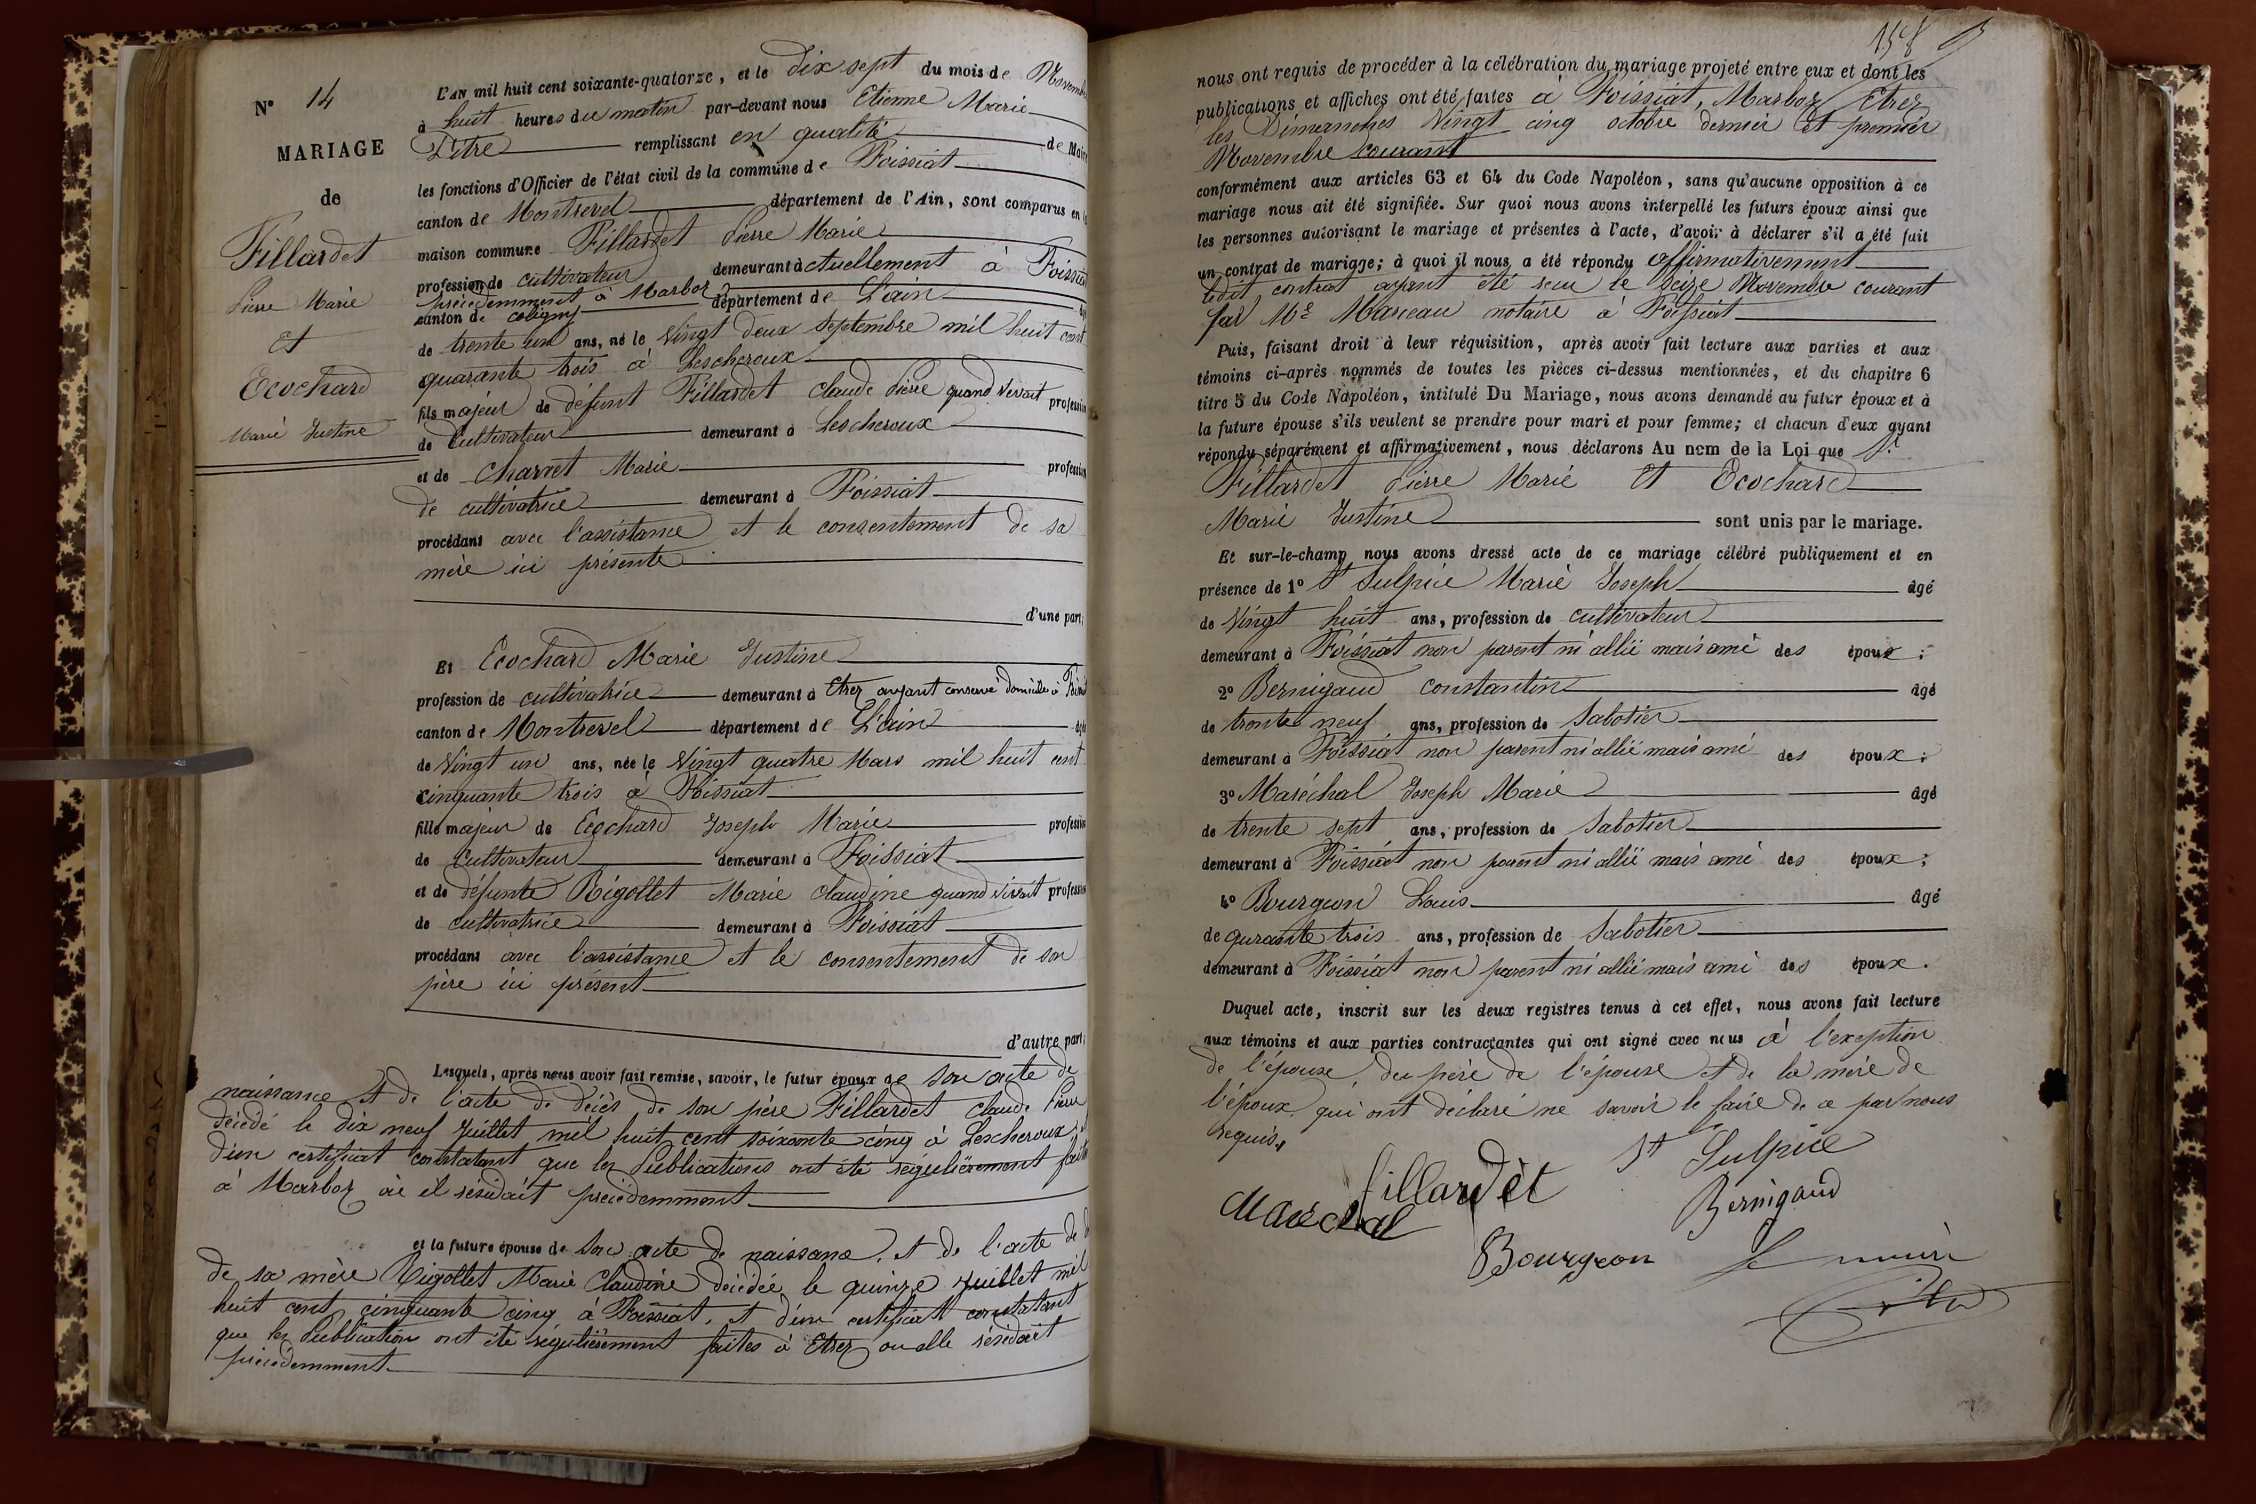 N° 14
MARIAGE
de
Fillardet
Pierre Marie
Et
Ecochard
Marie Justine
L'AN mil huit cent soixante-quatorze, et le dix sept du mois de Novembre
à huit heures du matin par-devant nous Etienne Marie
Pitre remplissant en qualité de Maire
les fonctions d'Officier de l'état civil de la commune de Foissiat
canton de Montrevel département de l'Ain, sont comparus en la
maison commune Fillardet Pierre Marie
profession de cultivateur demeurant à actuellement à Foissiat
précédemment à Marboz département de L'ain
canton de coligny
de trente un ans, né le Vingt deux septembre mil huit cent
quarante trois à Lescheroux
fils majeur de défunt Fillardet Claude Pierre quand vivait profession
de Cultivateur demeurant à Lescheroux
et de Charvet Marie profession
de cultivatrice demeurant à Foissiat
procédant avec l'assistance et le consentement de sa
mère ici présente
d'une part;
Et Ecochard Marie Justine
profession de cultivatrice demeurant à Etrez ayant conservé domicile à Foissiat
canton de Montrevel département de L'ain
de Vingt un ans, née le Vingt quatre Mars mil huit cent
cinquante trois à Foissiat
fille majeur de Ecochard Joseph Marie profession
de Cultivateur demeurant à Foissiat
et de défunte Rigollet Marie Claudine quand vivait profession
de cultivatrice demeurant à Foissiat
procédant avec l'assistance et le consentement de son
père ici présent
d'autre part;
Lesquels, après nous avoir fait remise, savoir, le futur époux de son acte de
naissance et de l'acte de décès de son père Fillardet Claude Pierre
décédé le dix neuf Juillet mil huit cent soixante cinq à Lescheroux, et
d'un certificat constatant que les Publications ont été régulièrement faites
à Marboz où il résidait précédemment
et la future épouse de son acte de naissance, et de l'acte de
de sa mère Rigollet Marie Claudine décédée le quinze Juillet mil
huit cent cinquante cinq à Foissiat, et d'un certificat constatant
que les Publication ont été régulièrement faites à Etrez ou elle résidait
précédemment
158
nous ont requis de procéder à la célébration du mariage projeté entre eux et dont les
publications et affiches ont été faites à Foissiat, Marboz, Etrez
les Dimanches Vingt cinq octobre dernier Et premier
Novembre courant
conformément aux articles 63 et 64 du Code Napoléon, sans qu'aucune opposition à ce
mariage nous ait été signifiée. Sur quoi nous avons interpellé les futurs époux ainsi que
les personnes autorisant le mariage et présentes à l'acte, d'avoir à déclarer s'il a été fait
un contrat de mariage; à quoi il nous a été répondu affirmativement
ledit contrat ayant été reçu le Seize Novembre courant
par Me Moreau notaire à Foissiat
Puis, faisant droit à leur réquisition, après avoir fait lecture aux parties et aux
témoins ci-après nommés de toutes les pièces ci-dessus mentionnées, et du chapitre 6
titre 5 du Code Napoléon, intitulé Du Mariage, nous avons demandé au futur époux et à
la future épouse s'ils veulent se prendre pour mari et pour femme; et chacun d'eux ayant
répondu séparément et affirmativement, nous déclarons Au nom de la Loi que
Fillardet Pierre Marie Et Ecochard
Marie Justine sont unis par le mariage.
Et sur-le-champ nous avons dressé acte de ce mariage célébré publiquement et en
présence de 1° St Sulpice Marie Joseph âgé
de Vingt huit ans, profession de cultivateur
demeurant à Foissiat non parent ni allié mais ami des époux;
2° Bernigaud constantin âgé
de trente neuf ans, profession de Sabotier
demeurant à Foissiat non parent ni allié mais ami des époux;
3° Maréchal Joseph Marie âgé
de trente sept ans, profession de Sabotier
demeurant à Foissiat non parent ni allié mais ami des époux;
4° Bourgeon Louis âgé
de qurante trois ans, profession de Sabotier
demeurant à Foissiat non parent ni allié mais ami des époux.
Duquel acte, inscrit sur les deux registres tenus à cet effet, nous avons fait lecture
aux témoins et aux parties contractantes qui ont signé avec nous à l'exception
de l'épouse, du père de l'épouse et de la mère de
l'époux qui ont déclaré ne savoir le faire de ce par nous
requis.
fillardet St Sulpice
Maréchal Bernigaud
Bourgeon Le maire
Pitre